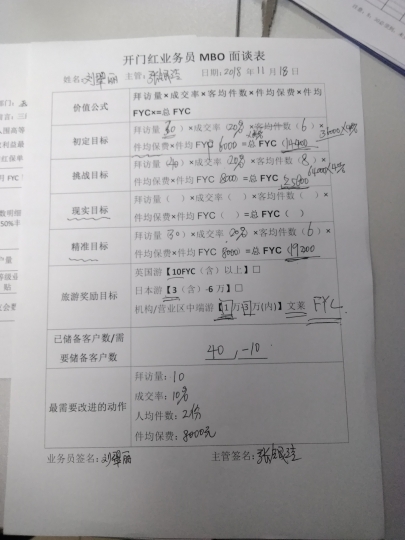 开门红业务员MBO面谈表
姓名: 刘翠丽 主管: 日期: 2018 年 11 月 18 日
价值公式
拜访量×成交率×客均件数×件均保费×件均
FYC×=总 FYC
初定目标
拜访量(30)×成交率(20%)×客均件数(6)×
件均保费×件均 FYC 6000 =总 FYC(14400)
挑战目标
拜访量(40)×成交率(20%)×客均件数(8)×
件均保费×件均 FYC 8000 =总 FYC(25600)
现实目标
拜访量( )×成交率( )×客均件数( )×
件均保费×件均 FYC( )=总 FYC( )
精准目标
拜访量(30)×成交率(20%)×客均件数(6)×
件均保费×件均 FYC(8000)=总 FYC(19200)
旅游奖励目标
英国游【10FYC(含)以上】□
日本游【3(含)-6 万】□
机构/营业区中端游【1万-3万(内)】文案 FYC
已储备客户数/需
要储备客户数
40, -10
最需要改进的动作
拜访量: 10
成交率: 10%
人均件数: 2份
件均保费: 8000元
业务员签名: 刘翠丽 主管签名: